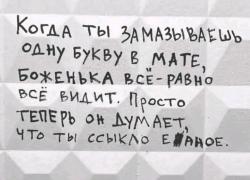 КОГДА ТЫ ЗАМАЗЫВАЕШЬ
ОДНУ БУКВУ В МАТЕ,
БОЖЕНЬКА ВСЁ-РАВНО
ВСЁ ВИДИТ. ПРОСТО
ТЕПЕРЬ ОН ДУМАЕТ,
ЧТО ТЫ ССЫКЛО Е НОЕ.